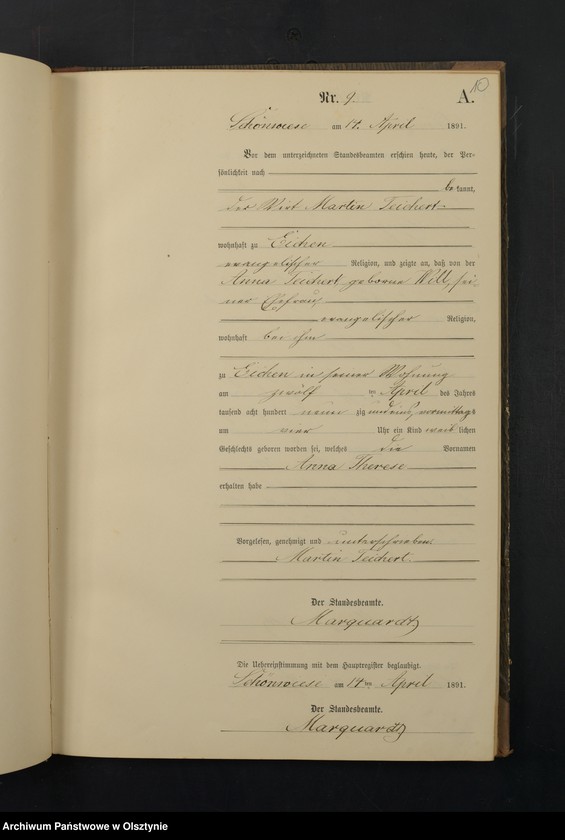 10
Nr. 9. A.
Schönwiese am 14. April 1891.
Vor dem unterzeichneten Standesbeamten erschien heute, der Per-
sönlichkeit nach
be kannt,
der Wirt Martin Teichert
wohnhaft zu Eichen
evangelischer Religion, und zeigte an, daß von der
Anna Teichert geborne Will, sei-
ner Ehefrau
evangelischer Religion,
wohnhaft bei ihm
zu Eichen in seiner Wohnung
am zwölf ten April des Jahres
tausend acht hundert neun zig und eins, vormittags
um vier Uhr ein Kind weib lichen
Geschlechts geboren worden sei, welches die Vornamen
Anna Therese
erhalten habe
Vorgelesen, genehmigt und unterschrieben:
Martin Teichert.
Der Standesbeamte.
Marquardt
Die Uebereinstimmung mit dem Hauptregister beglaubigt.
Schönwiese am 14 ten April 1891.
Der Standesbeamte.
Marquardt
Archiwum Państwowe w Olsztynie